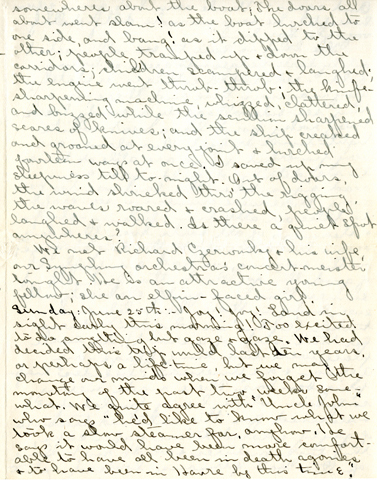 somewheres about the boat; the doors all
about went slam! as the boat lurched to
one side, and bang! as it dipped to the
other; people tramped up & down the
corridors; children scampered & laughed;
the engine went throb-throb; the knife
sharpening machine whizzed, clattered
and buzzed while the scullion sharpened
scores of knives; and the ship creaked
and groaned at every joint & lurched
fourteen ways at once. I saved up my
sleepiness till to-night. Out of doors,
the wind shrieked thro' the rigging,
the waves roared & crashed, people
laughed & walked. Is there a quiet spot
anywheres?
We met Richard Czerwonky & his wife,
our Symphony orchestra's concert-meister
to-night. He is an attractive young
fellow; she an elfin-faced girl.
Sunday, June 25th. Joy! Joy! Land in
sight early this morning! Too excited
to do anything but gaze & gaze. We had
decided this trip would last ten years,
or perhaps a life-time, but we may
change our minds when we forget the
monotony of the past two weeks some-
what. We quite agree with "Uncle John"
who says "he'd like to know why we
took a slow steamer for, anyhow. He
says it would have been more comfort-
able to have all been in death agonies
& to have been in Havre by this time."